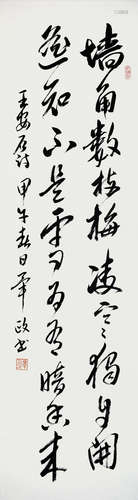 墙角数枝梅凌寒独自开
遥知不是雪为有暗香来
王安石诗甲午春日军政书